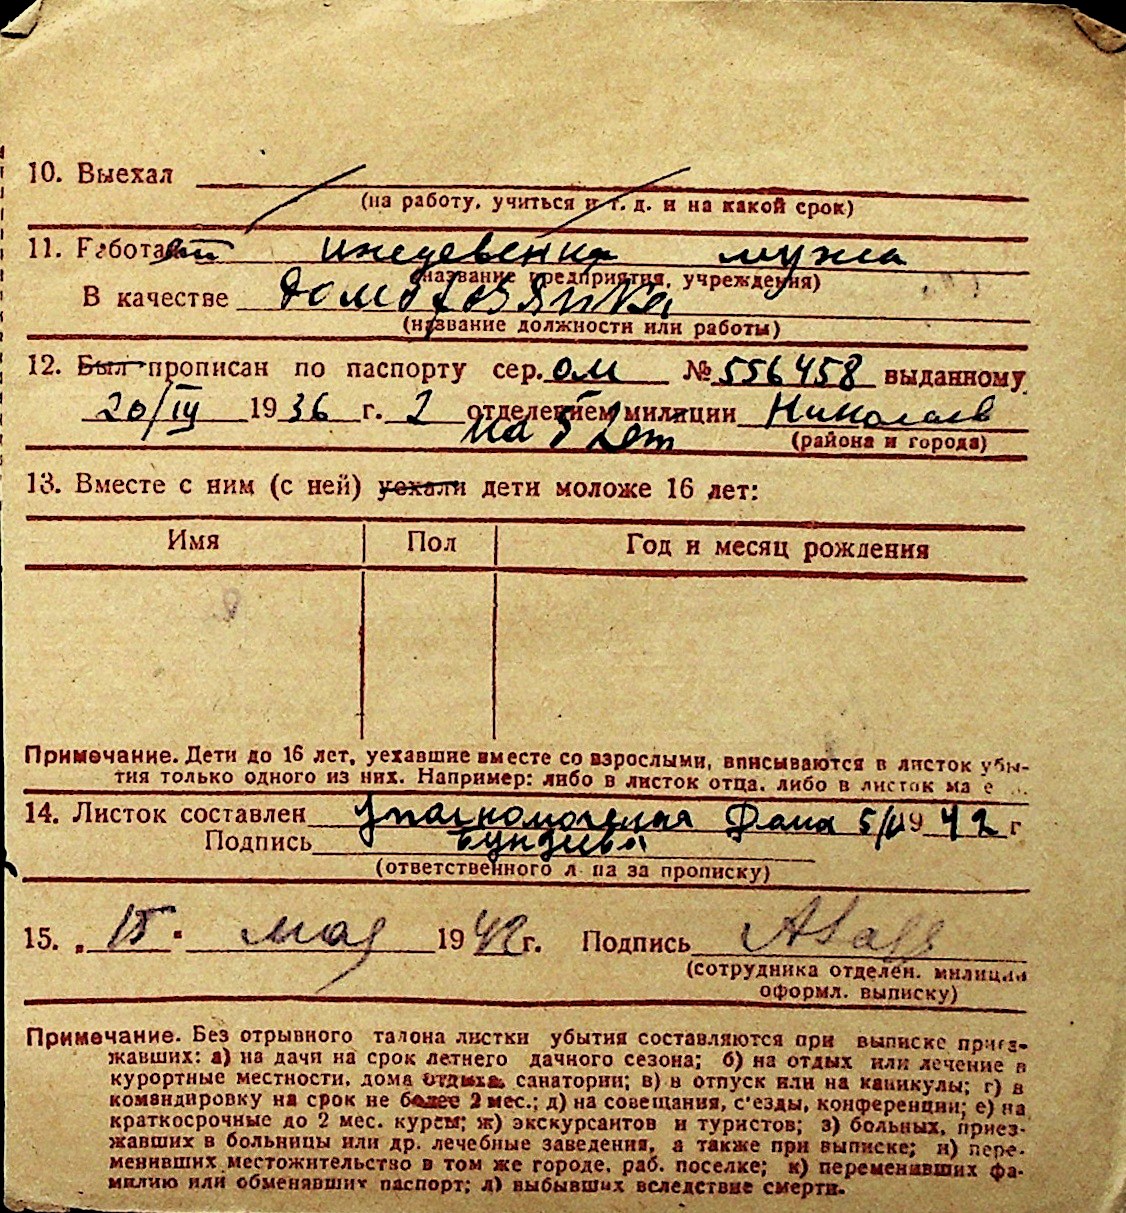 10. Выехал
(на работу, учиться и т. д. и на какой срок)
11. Работает иждевенка мужа
(название предприятия, учреждения)
В качестве домохозяйка
(название должности или работы)
12. Был прописан по паспорту сер. ОМ № 556458 выданному
20/III 1936 г. 2 отделением милиции Николаев
на 5 лет (района и города)
13. Вместе с ним (с ней) уехали дети моложе 16 лет:
Имя Пол Год и месяц рождения
Примечание. Дети до 16 лет, уехавшие вместе со взрослыми, вписываются в листок убы-
тия только одного из них. Например: либо в листок отца, либо в листок ма е
14. Листок составлен Дата 5/ 1942 г
Подпись
(ответственного л па за прописку)
15. „15" мая 1942 г. Подпись
(сотрудника отделен. милиции
оформл. выписку)
Примечание. Без отрывного талона листки убытия составляются при выписке приез-
жавших: а) на дачи на срок летнего дачного сезона; б) на отдых или лечение в
курортные местности, дома отдыха, санатории; в) в отпуск или на каникулы; г) в
командировку на срок не более 2 мес.; д) на совещания, с'езды, конференции; е) на
краткосрочные до 2 мес. курсы; ж) экскурсантов и туристов; з) больных, приез-
жавших в больницы или др. лечебные заведения, а также при выписке; и) пере-
менивших местожительство в том же городе, раб. поселке; к) переменивших фа-
милию или обменявших паспорт; л) выбывших вследствие смерти.